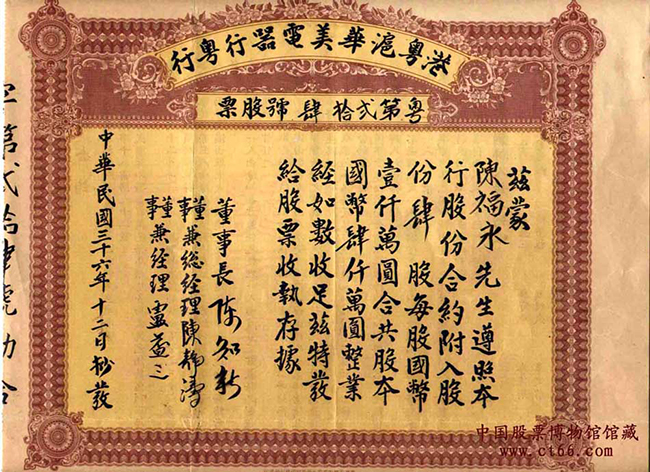 港粤滬華美電器行粤行
粤第弍拾肆號股票
茲蒙
陳福永先生遵照本
行股份合約附入股
份肆股每股國幣
壹仟萬圓合共股本
國幣肆仟萬圓整業
經如數收足茲特發
給股票收執存據
董事長陈知新
董事兼總經理陳靜濤
董事兼經理盧益之
中華民國三十六年十二日杪發
第弍拾肆號
中国股票博物馆馆藏
www.ct66.com